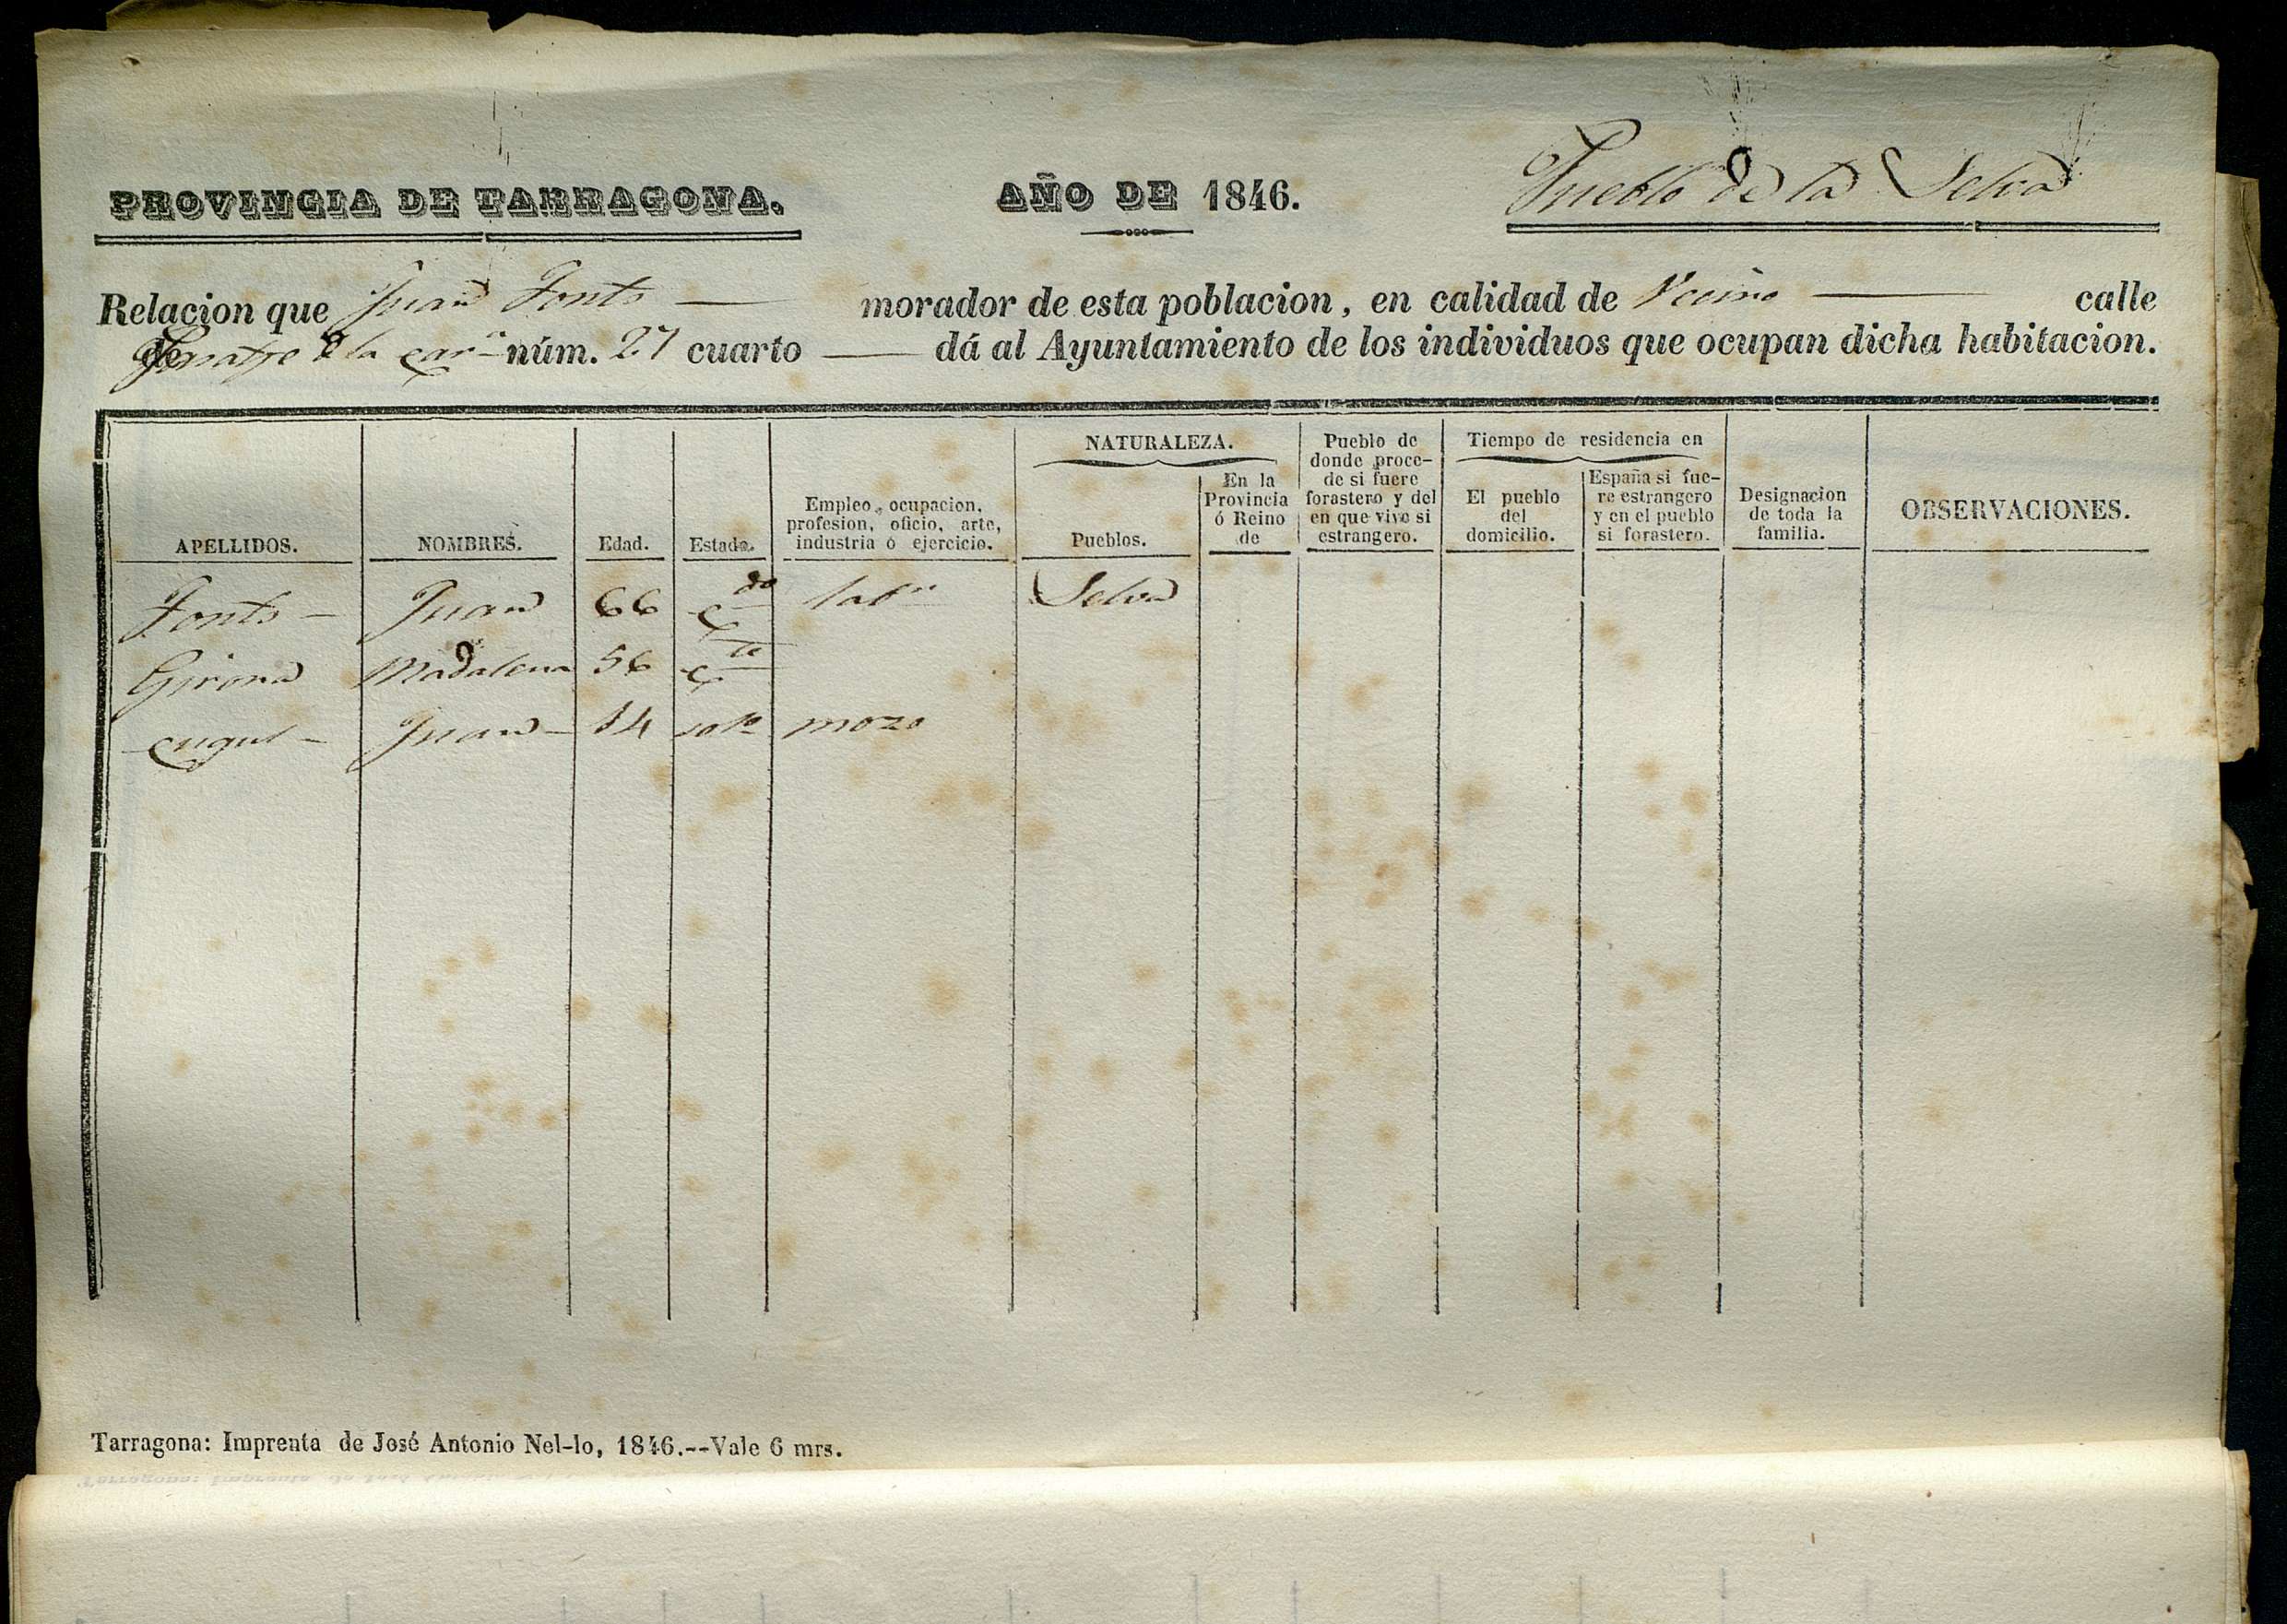 PROVINCIA DE TARRAGONA. AÑO DE 1846. Pueblo de la Selva
Relacion que Juan Fonts — morador de esta poblacion, en calidad de Vecino — calle
de la núm. 27 cuarto — dá al Ayuntamiento de los individuos que ocupan dicha habitacion.
APELLIDOS.
NOMBRES.
Edad.
Estado.
Empleo, ocupacion,
profesion, oficio, arte,
industria ó ejercicio.
NATURALEZA.
Pueblos.
En la
Provincia
ó Reino
de
Pueblo de
donde proce-
de si fuere
forastero y del
en que vive si
estrangero.
Tiempo de residencia en
El pueblo
del
domicilio.
España si fue-
re estrangero
y en el pueblo
si forastero.
Designacion
de toda la
familia.
OBSERVACIONES.
Fonts — Juan 66 cdo labr Selva
Girona Madalena 56 cda
Cugul — Juan — 14 solo mozo
Tarragona: Imprenta de José Antonio Nel-lo, 1846.--Vale 6 mrs.